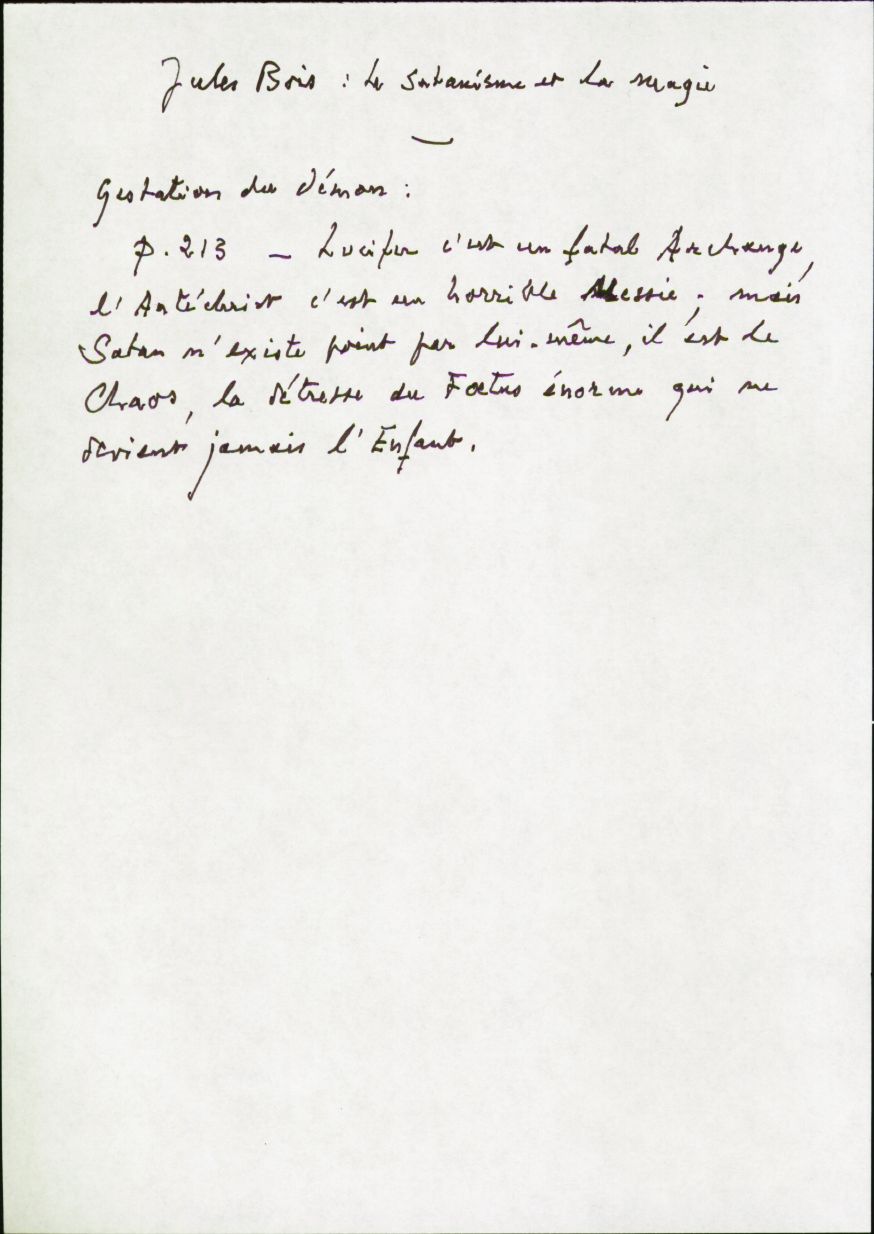 Jules Bois : Le Satanisme et la magie
—
Gestation du Démon :
p. 213 — Lucifer c'est un fatal Archange,
l'Antéchrist c'est un horrible Messie ; mais
Satan n'existe point par lui-même, il est le
Chaos, la détresse du Fœtus énorme qui ne
devient jamais l'Enfant.